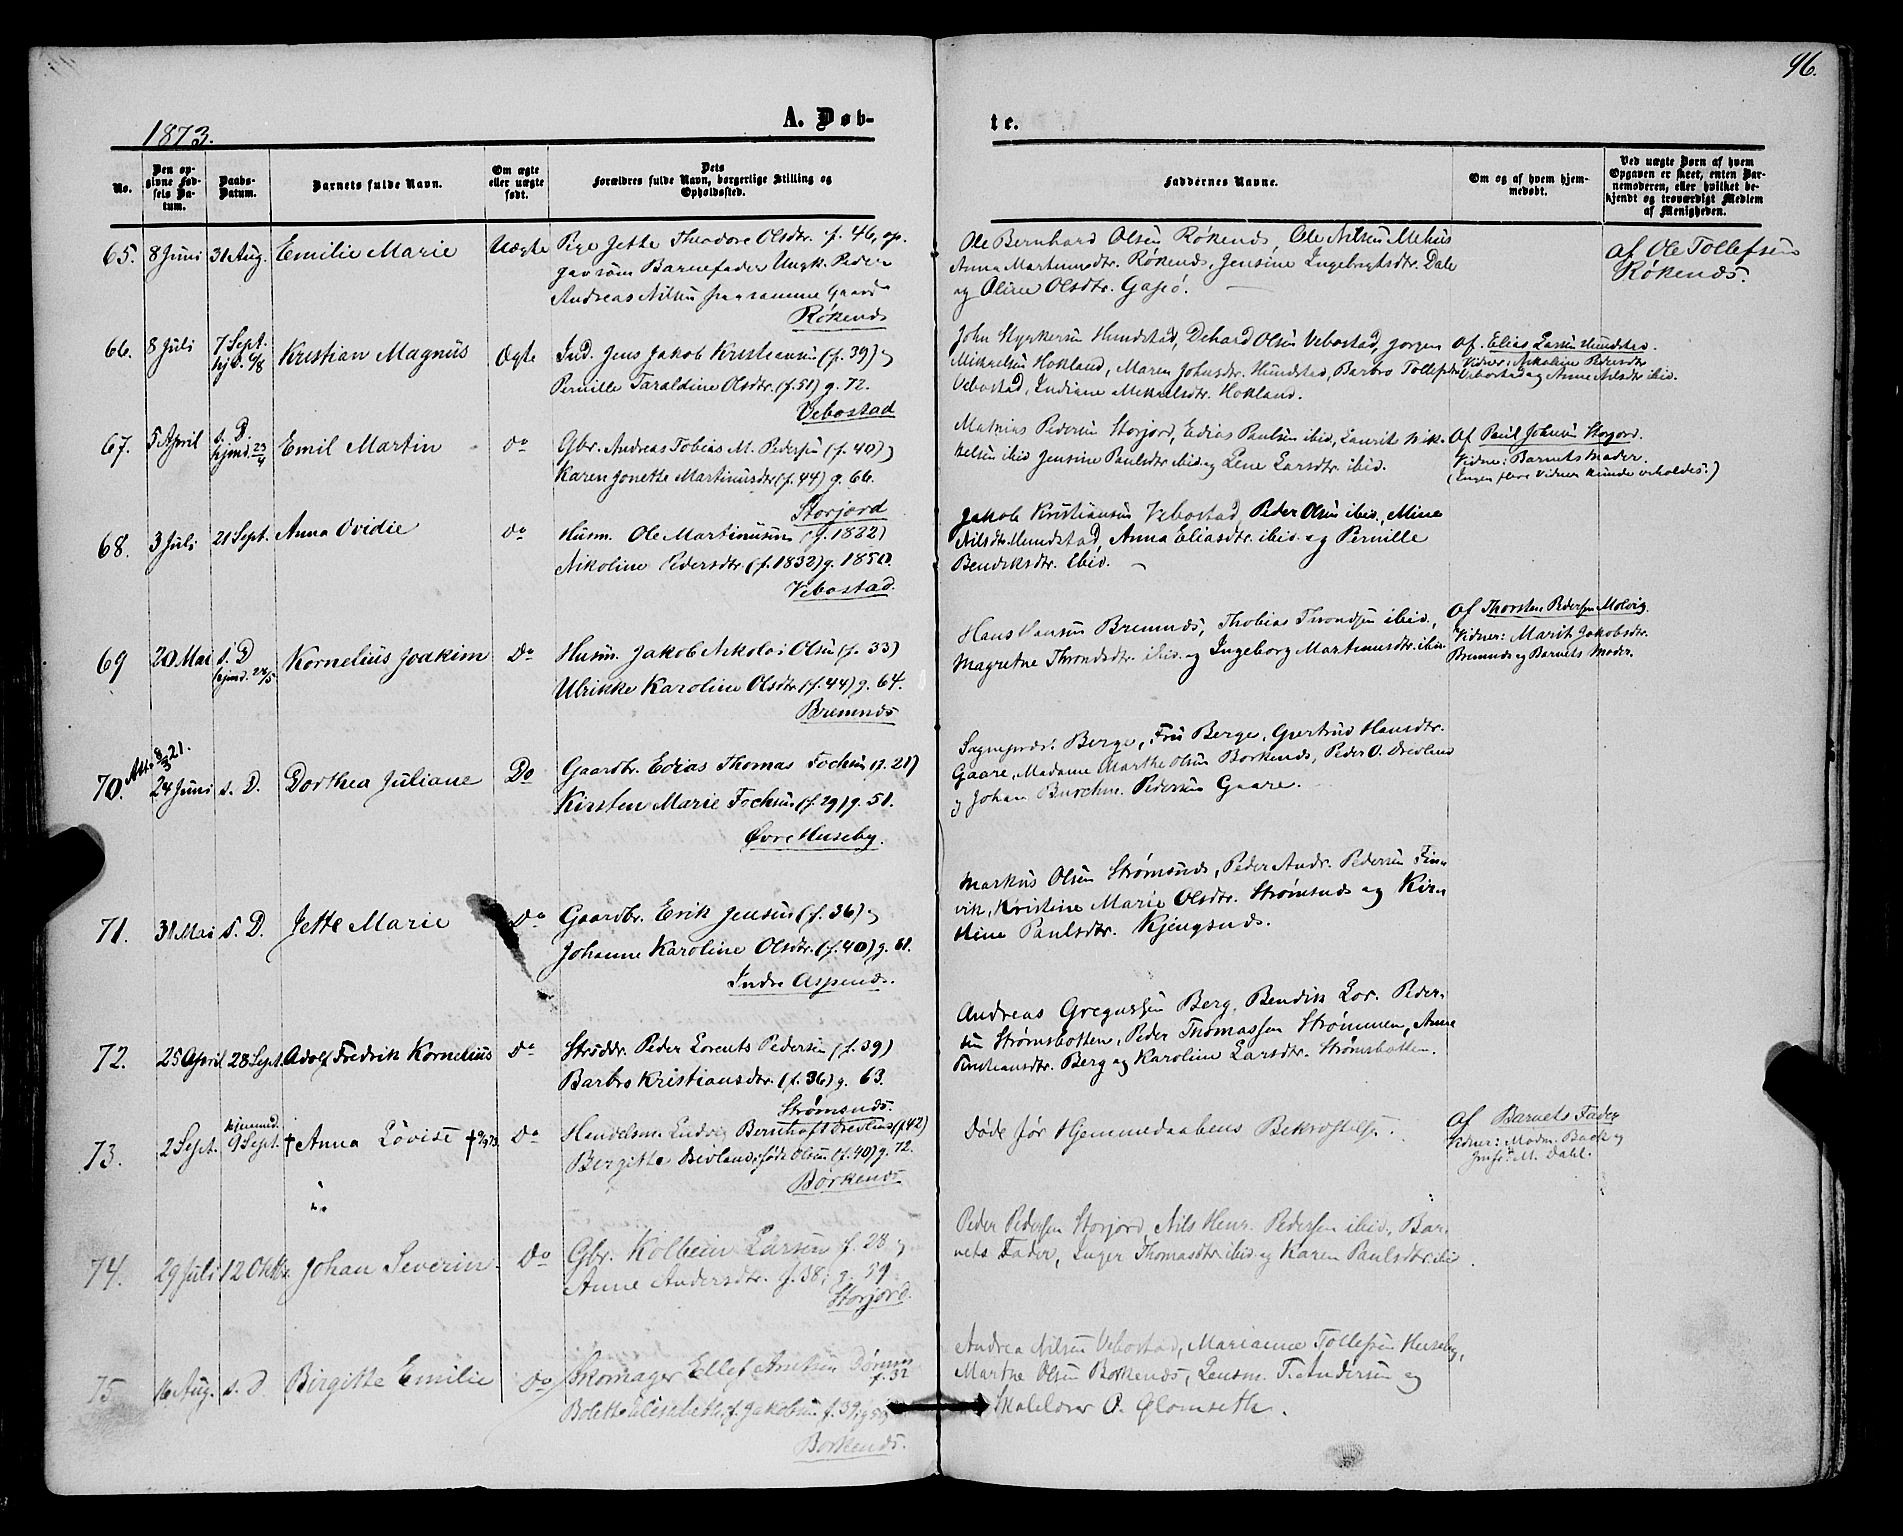 96.
1873.
A. Døb-
te.
No.
Den op-
givne Fød-
sels Da-
tum.
Daabs-
Datum.
Barnets fulde Navn.
Om ægte
eller uægte
født.
Dets
Forældres fulde Navn, borgerlige Stilling og
Opholdssted.
Faddernes Navne.
Om og af hvem hjem-
medøbt.
Ved uægte Børn af hvem
Opgaven er skeet, enten Bar-
nemoderen, eller hvilket be-
kjendt og troværdigt Medlem
af Menigheden.
65. 8 Juni 31 Aug. Emilie Marie Uægte
Pige Jette Theodore Olsdtr. f. 46, op.
gav som Barnefader Ungk. Peder
Andreas Nilsen fra samme Gaard
Røkenes
Ole Bernhard Olsen Røkenes, Ole Nilsen Melhus
Anna Martinusdtr. Røkenes, Jensine Ingebrigtsdtr. Dale
og Oline Olsdtr. Gapø.
Af Ole Tollefsen
Røkenes.
66. 8 Juli 7 Sept.
hjd. 6/8
Kristian Magnus Ægte
Ind. Jens Jakob Kristiansen (f. 39) og
Pernille Taraldine Olsdtr. (f. 51) g. 72.
Vebostad
John Styrkersen Hundstad, Dehard Olsen Vebostad, Jørgen
Mikkelsen Hokland, Maren Johnsdtr. Hundstad, Barbro Tollefsdtr
Vebostad, Indiane Mikkelsdtr. Hokland.
Af Elias Larsen Hundstad.
Vidner: Nikoline Pedersdtr
Vebostad og Anne Nilsdtr ibid.
67. 5 April s. D.
hjmd. 23/4
Emil Martin do
Gbr. Andreas Tobias M. Pedersen (f. 40) og
Karen Jonette Martinusdtr (f. 44) g. 66.
Storjord
Mathias Pedersen Storjord, Edias Paulsen ibid, Laurits Mik-
kelsen ibid Jensine Paulsdtr ibid og Lene Larsdtr. ibid.
Af Paul Johnsen Storjord.
Vidne: Barnets Moder.
(Ingen flere Vidner kunde erholdes.)
68. 3 Juli 21 Sept. Anna Ovidie do
Husm. Ole Martinussen (f. 1822)
Nikoline Pedersdtr (f. 1832) g. 1850.
Vebostad.
Jakob Kristiansen Vebostad, Peder Olsen ibid., Mine
Nilsdtr. Hundstad, Anna Eliasdtr. ibid. og Pernille
Bendiksdtr. Ibid.
69 20 Mai s. D
hjmd. 24/5
Kornelius Joakim Do
Husm. Jakob Nikolai Olsen (f. 33)
Ulrikke Karoline Olsdtr (f. 44) g. 64.
Bremnes
Hans Hansen Bremnes, Thobias Throndsen ibid.,
Magrethe Throndsdtr. ibid. og Ingeborg Martinusdtr. ibid.
Af Thorsten Pedersen Molvig.
Vidner: Marit Jakobsdtr.
Bremnes og Barnets Moder.
70. Att. 8/3 21.
24 Juni s. D. Dorthea Juliane Do
Gaardbr. Edias Thomas Fochsen (f. 28)
Kirsten Marie Fochsen (f. 29) g. 51.
Øvre Huseby.
Sognepræst Berge, Fru Berge, Gjertrud Hansdtr.
Gaare, Madame Marthe Olsen Borkenes, Peder O. Drevland
og Johan Burchm. Pedersen Gaare.
71. 31 Mai s. D. Jette Marie Do
Gaardbr. Erik Jensen (f. 36) og
Johanne Karoline Olsdtr. (f. 40) g. 61.
Indre Aspenes.
Markus Olsen Strømsnes, Peder Andr. Pedersen Fin-
vik, Kristine Marie Olsdtr. Strømsnes og Kir-
stine Paulsdtr. Kjengsnes.
72. 25 April 28 Sept. Adolf Fredrik Kornelius Do
Strødbr. Peder Lorents Pedersen (f. 39)
Barbro Kristiansdtr. (f. 36) g. 63.
Strømsnes.
Andreas Gregussen Berg, Bendik Lor. Peder-
sen Strømsbotten, Peder Thomassen Strømmen, Anne
Kristiansdtr. Berg og Karoline Larsdtr. Strømsbotten.
73. 2 Sept. hjemmd.
9 Sept.
† Anna Lovise † 9/9 73. Do
Handelsm. Ludvig Bernhoft Drevland (f. 42)
Bergitte Drevland, født Olsen (f. 40) g. 72.
Borkenes
Døde før Hjemmedaabens Bekræftelse.
Af Barnets Fader
Vidner: Madm. Back og
Jmfr. M. Dahl.
74. 29 Juli 12 Oktbr. Johan Severin Do
Gbr. Kolbein Larsen f. 28 og
Anne Andersdtr. f. 38; g. 59.
Storjord.
Peder Pedersen Storjord, Nils Henr. Pedersen ibid, Bar-
nets Fader, Inger Thomasdtr. ibid. og Karen Paulsdtr. ibid.
75. 16 Aug. s. D. Birgitte Emilie Do
Skomager Ellef Arntsen
f. 32
Bolette Elisabeth f. Jakobsen f. 39; g. 59
Borkenes.
Andrea Nilsen Vebostad, Marianne Tollefsen Huseby,
Marthe Olsen Borkenes, Lensm. T. Andersen og
Skolelærer O. Glomseth.